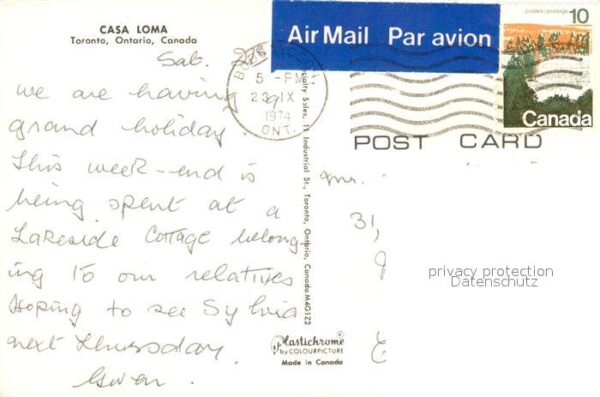 CASA LOMA
Toronto, Ontario, Canada
Sat.
we are having a
grand holiday.
This week-end is
being spent at a
Lakeside Cottage belong-
ing to our relatives
Hoping to see Sylvia
next Thursday
Gwen.
Plastichrome®
by COLOURPICTURE
Made in Canada
Specialty Sales, 11 Industrial St., Toronto, Ontario, Canada M4G1Z2
Air Mail Par avion
5 - PM
IX
1974
ONT.
postes/postage
10
Canada
POST CARD
Mr.
31,
privacy protection
Datenschutz